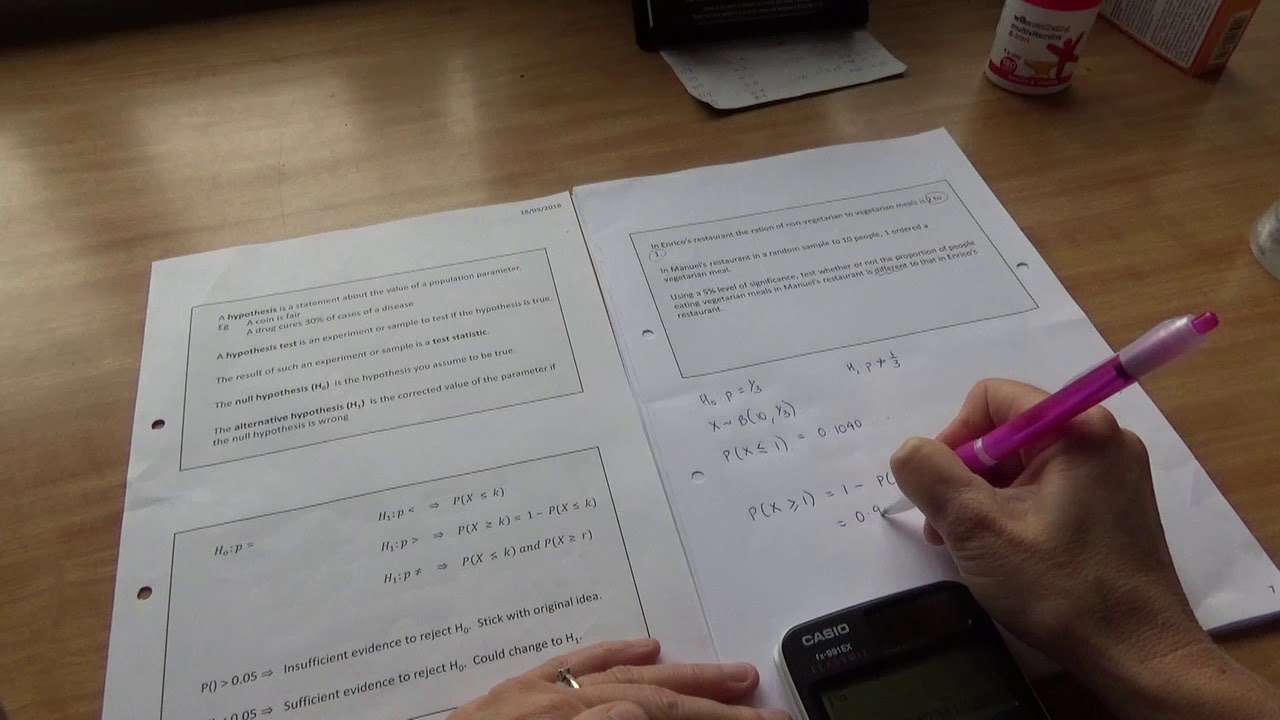 wilko
multivitamins
& iron
180
18/09/2018
A hypothesis is a statement about the value of a population parameter.
Eg A coin is fair
A drug cures 30% of cases of a disease
A hypothesis test is an experiment or sample to test if the hypothesis is true.
The result of such an experiment or sample is a test statistic.
The null hypothesis (H₀) is the hypothesis you assume to be true.
The alternative hypothesis (H₁) is the corrected value of the parameter if
the null hypothesis is wrong
H₀: p =
H₁: p < ⇒ P(X ≤ k)
H₁: p > ⇒ P(X ≥ k) = 1 − P(X ≤ k)
H₁: p ≠ ⇒ P(X ≤ k) and P(X ≥ r)
P() > 0.05 ⇒ Insufficient evidence to reject H₀. Stick with original idea.
0.05 ⇒ Sufficient evidence to reject H₀. Could change to H₁.
In Enrico's restaurant the ration of non-vegetarian to vegetarian meals is 2 to
1.
In Manuel's restaurant in a random sample to 10 people, 1 ordered a
vegetarian meal.
Using a 5% level of significance, test whether or not the proportion of people
eating vegetarian meals in Manuel's restaurant is different to that in Enrico's
restaurant.
H₀ p = 1/3 H₁ p ≠ 1/3
X ~ B(10, 1/3)
P(X ≤ 1) = 0.1040...
P(X ≥ 1) = 1 − P(
= 0.9
CASIO
fx-991EX
CLASSWIZ